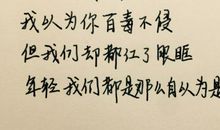 我以为你百毒不侵
但我们却都红了眼眶
年轻我们都是那么自以为是